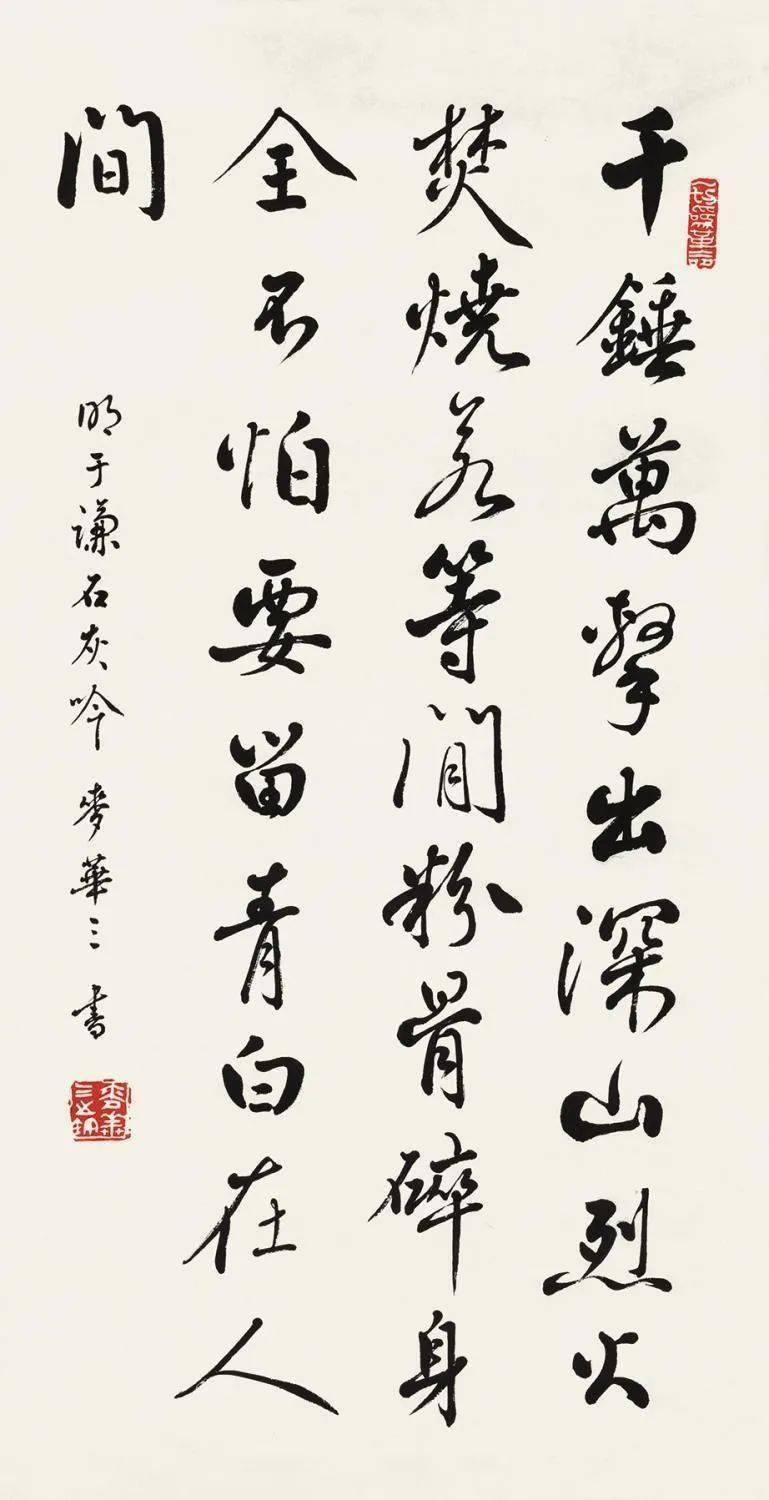 千錘萬擊出深山烈火
焚燒若等閒粉骨碎身
全不怕要留青白在人
間
明于謙石灰吟 麥華三書